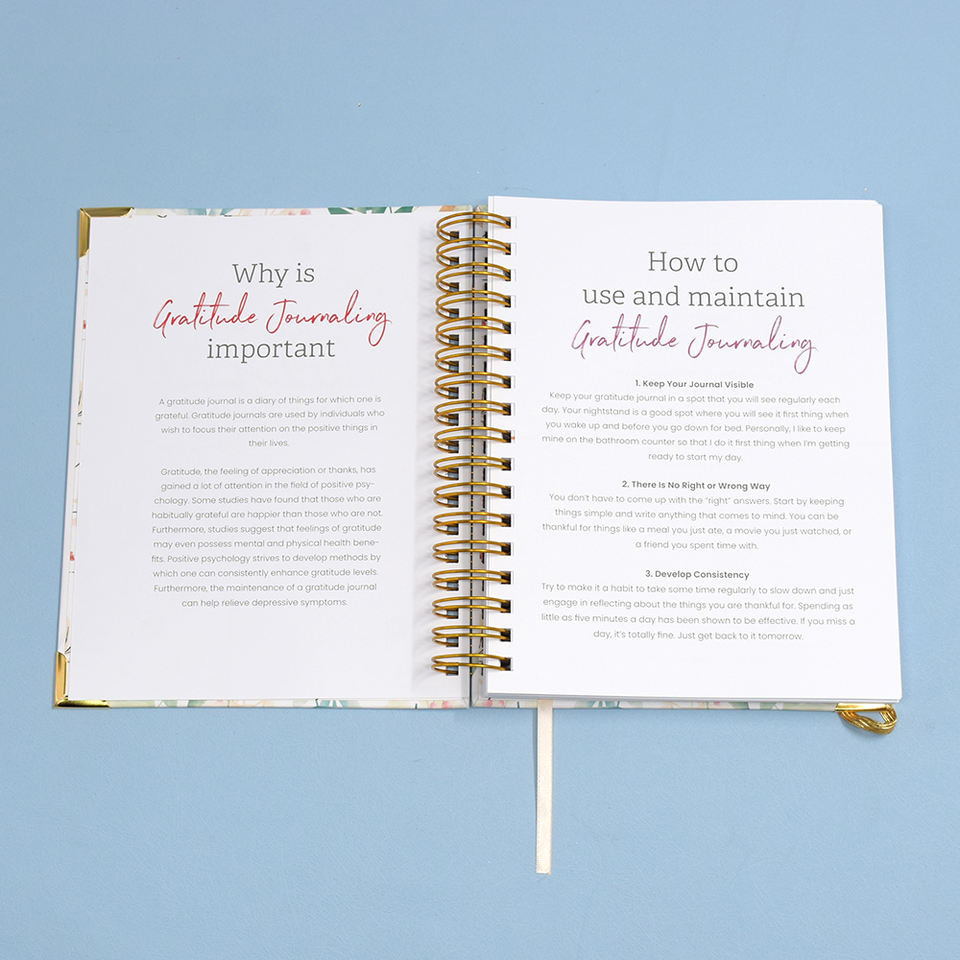 Why is
Gratitude Journaling
important
A gratitude journal is a diary of things for which one is
grateful. Gratitude journals are used by individuals who
wish to focus their attention on the positive things in
their lives.
Gratitude, the feeling of appreciation or thanks, has
gained a lot of attention in the field of positive psy-
chology. Some studies have found that those who are
habitually grateful are happier than those who are not.
Furthermore, studies suggest that feelings of gratitude
may even possess mental and physical health bene-
fits. Positive psychology strives to develop methods by
which one can consistently enhance gratitude levels.
Furthermore, the maintenance of a gratitude journal
can help relieve depressive symptoms.
How to
use and maintain
Gratitude Journaling
1. Keep Your Journal Visible
Keep your gratitude journal in a spot that you will see regularly each
day. Your nightstand is a good spot where you will see it first thing when
you wake up and before you go down for bed. Personally, I like to keep
mine on the bathroom counter so that I do it first thing when I'm getting
ready to start my day.
2. There Is No Right or Wrong Way
You don't have to come up with the "right" answers. Start by keeping
things simple and write anything that comes to mind. You can be
thankful for things like a meal you just ate, a movie you just watched, or
a friend you spent time with.
3. Develop Consistency
Try to make it a habit to take some time regularly to slow down and just
engage in reflecting about the things you are thankful for. Spending as
little as five minutes a day has been shown to be effective. If you miss a
day, it's totally fine. Just get back to it tomorrow.